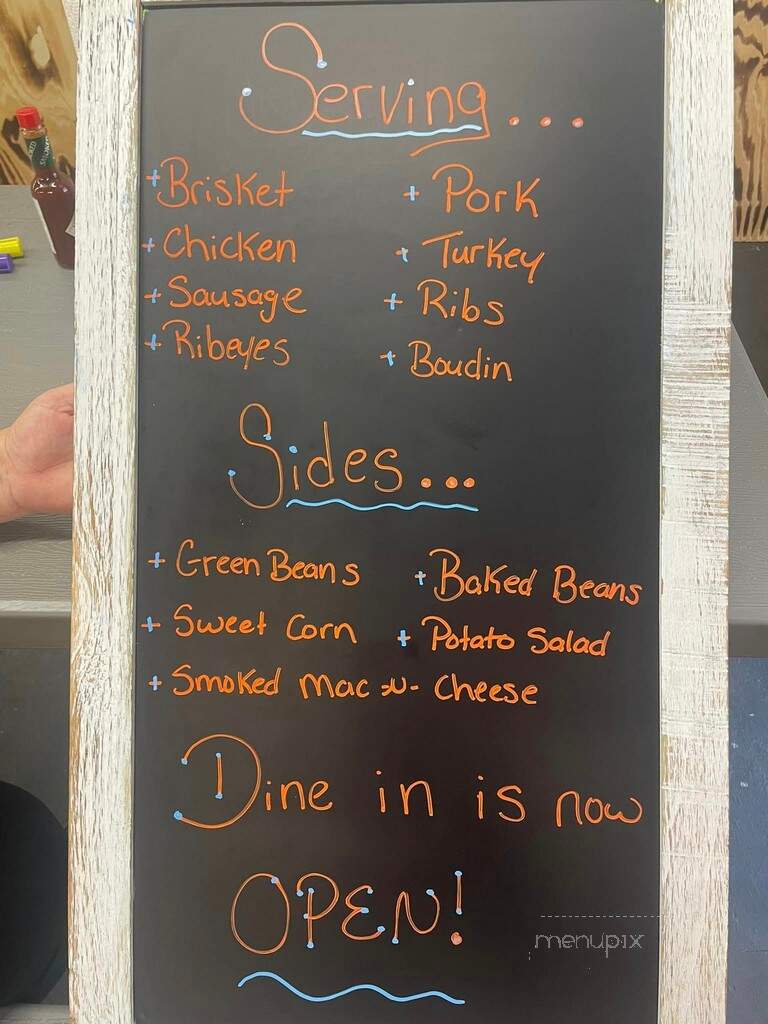 Serving...
+ Brisket + Pork
+ Chicken + Turkey
+ Sausage + Ribs
+ Ribeyes + Boudin
Sides...
+ Green Beans + Baked Beans
+ Sweet Corn + Potato Salad
+ Smoked Mac -N- Cheese
Dine in is now
OPEN!
menupix